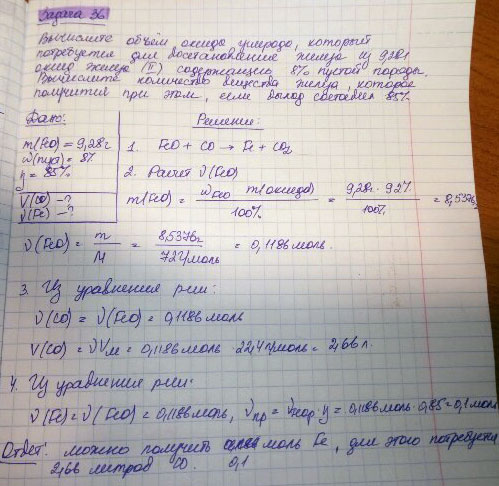 Задача 36
Вычислите объём оксида углерода, который
потребуется для восстановления железа из 9,28г
оксид железа (II) содержащего 8% пустой породы.
Вычислите количество вещества железа, которое
получится при этом, если выход составил 85%
Дано:
m(FeO) = 9,28г
ω(пуст) = 8%
η = 85%
V(CO) - ?
ν(Fe) - ?
Решение:
1. FeO + CO → Fe + CO2
2. Расчет ν(FeO)
m(FeO) = ωFeO · m(оксида) / 100% = 9,28г · 92% / 100% = 8,5376г
ν(FeO) = m / M = 8,5376г / 72г/моль = 0,1186 моль.
3. Из уравнения р-ии:
ν(CO) = ν(FeO) = 0,1186 моль
V(CO) = νVм = 0,1186 моль · 22,4 л/моль = 2,66 л.
4. Из уравнения р-ии:
ν(Fe) = ν(FeO) = 0,1186 моль, νпр = νтеор · η = 0,1186 моль · 0,85 = 0,1 моль
Ответ: можно получить 0,1 моль Fe, для этого потребуется
2,66 литров CO.